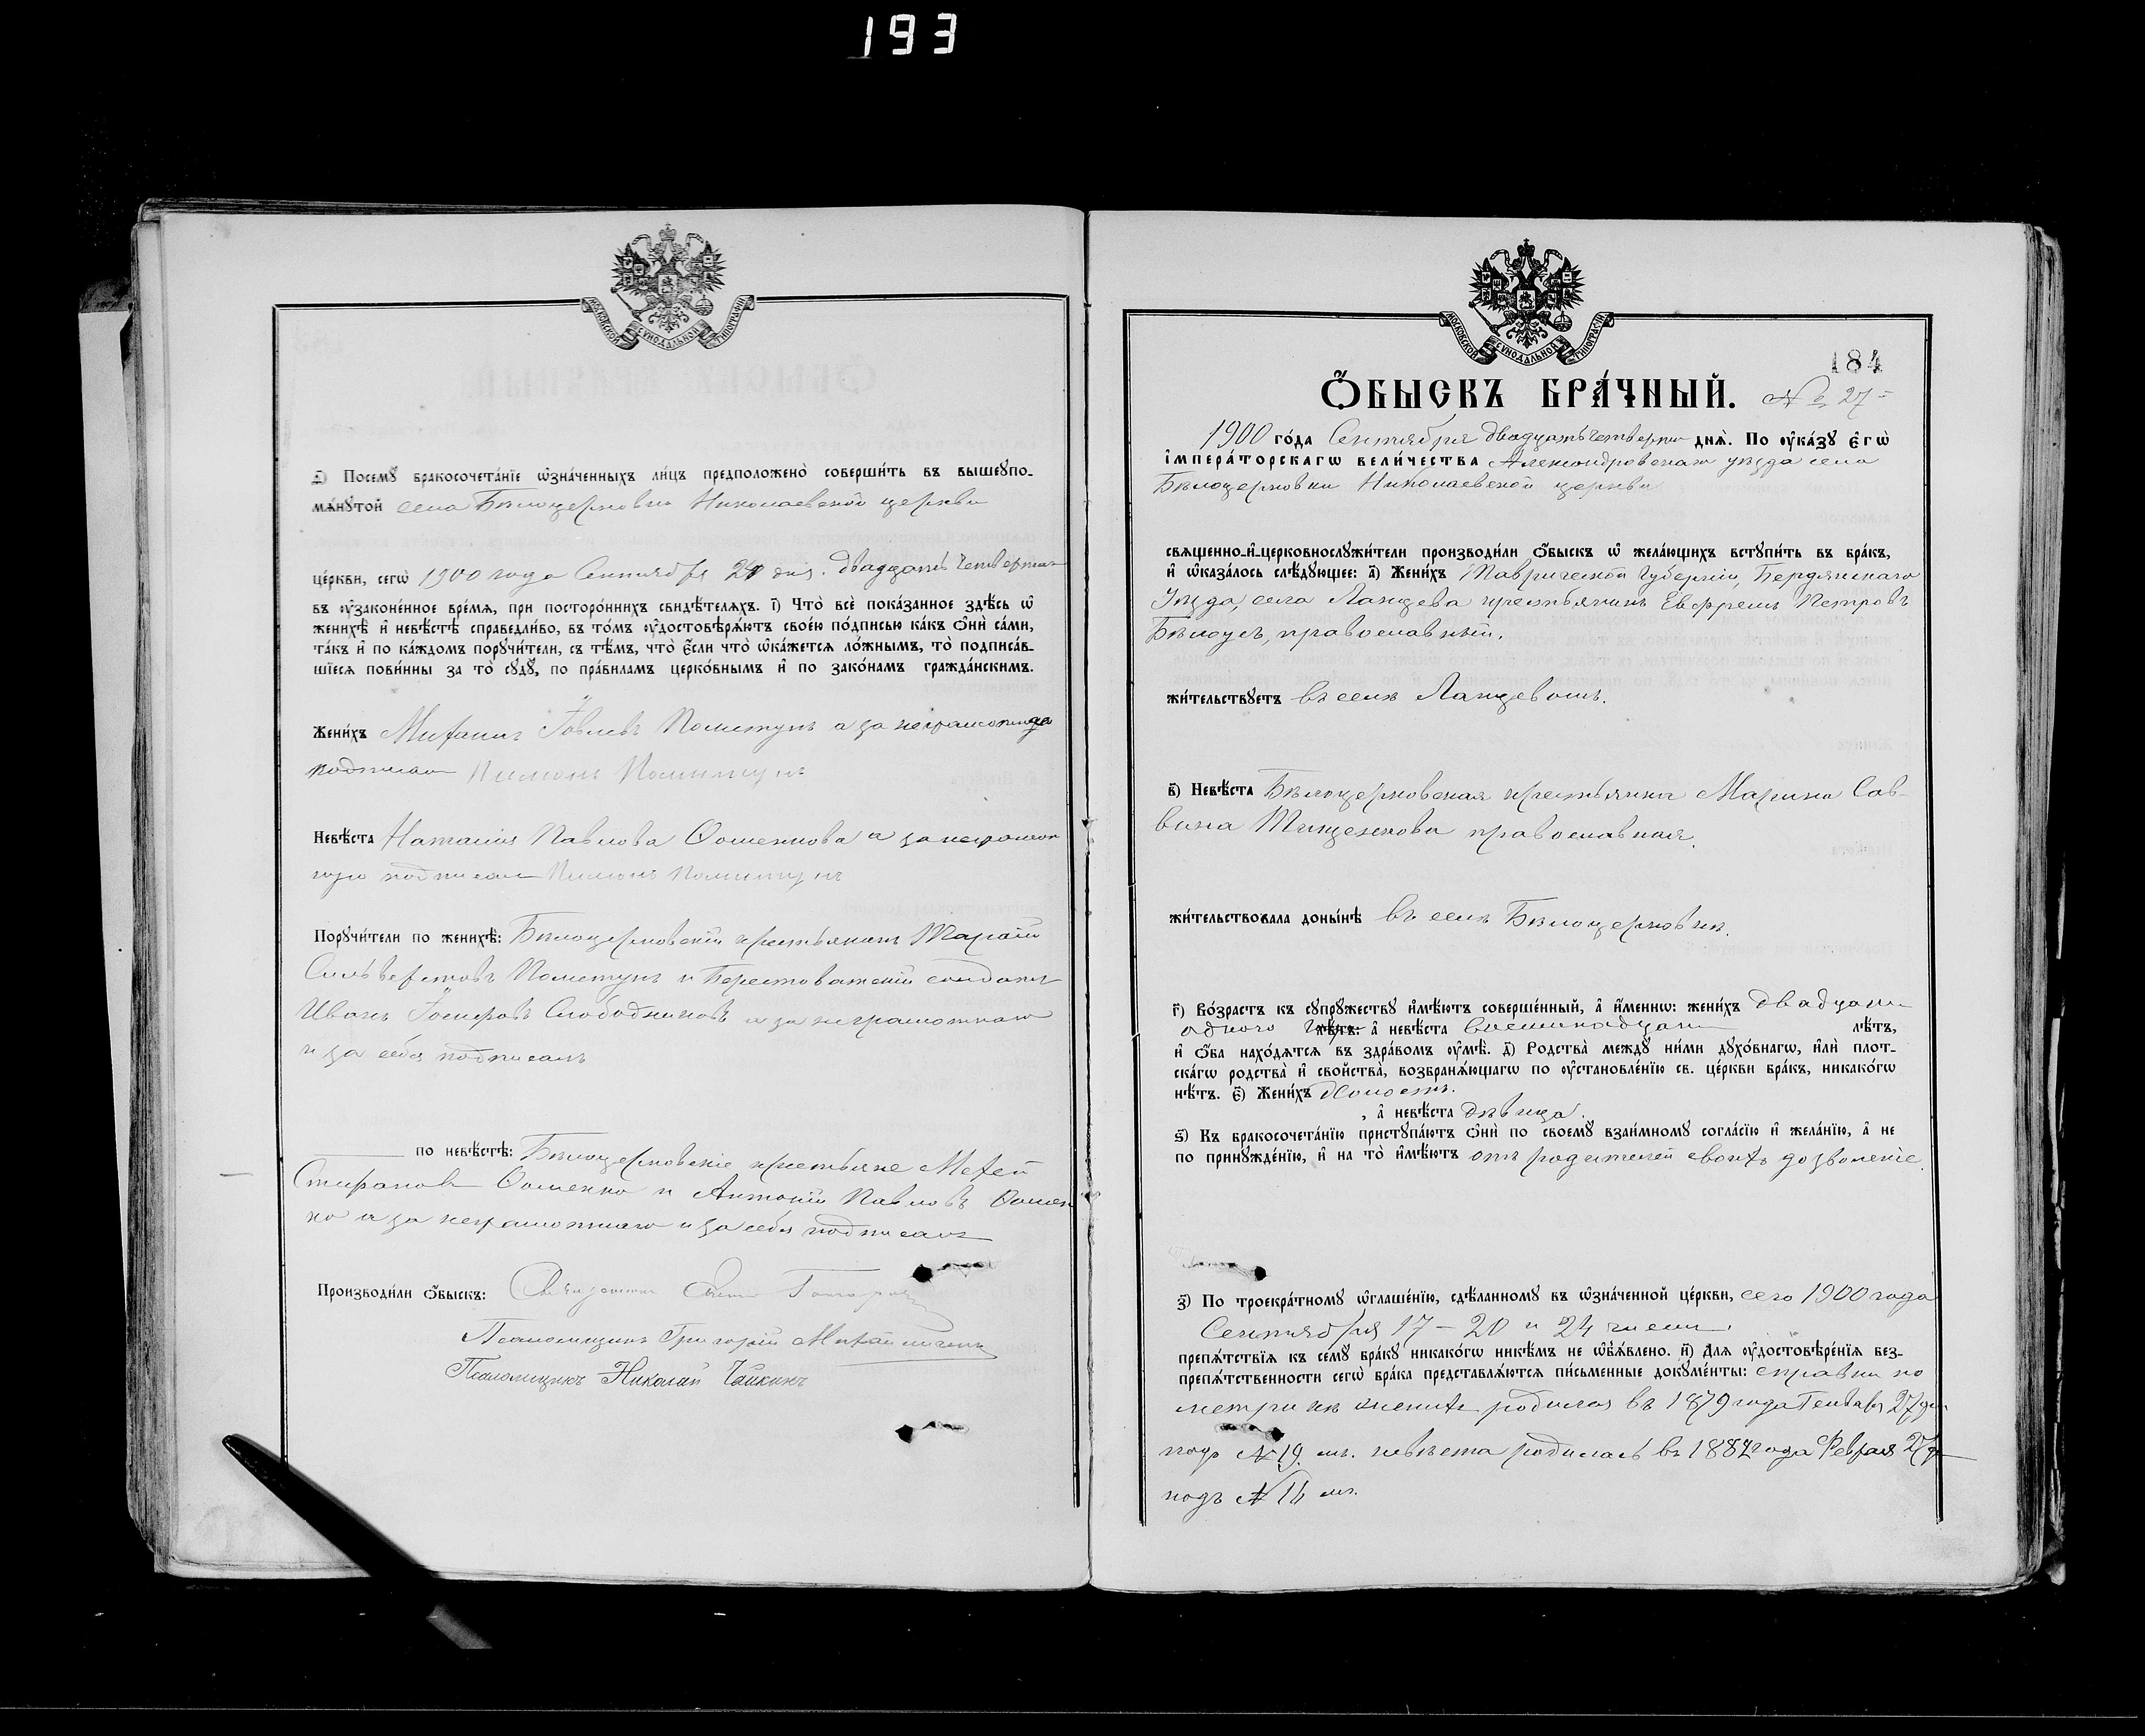 193
МОСКОВСКОЙ СѴНОДАЛЬНОЙ ТИПОГРАФІИ
Посемꙋ̀ бракосочета́нїе ѡ҆зна́ченныхъ ли́цъ предположено̀ соверши́ть въ вышеꙋпо-
мѧ́нꙋтой села Бѣлоцерковки Николаевской церкви
це́ркви, сегѡ̀ 1900 года Сентября 24 дня. двадцать четвертаго
въ ᲂу҆зако́ненное вре́мѧ, при посторо́ннихъ свидѣ́телѧхъ. і҃) Что̀ всѐ пока́занное здѣ́сь ѡ҆
женихѣ̀ и҆ невѣ́стѣ справедли́во, въ то́мъ ᲂу҆достовѣрѧ́ютъ свое́ю по́дписью ка́къ ѻ҆нѝ са́ми,
та́къ и҆ по ка́ждомъ порꙋчи́тели, съ тѣ́мъ, что̀ є҆́сли что̀ ѡ҆ка́жетсѧ ло́жнымъ, то̀ подписа́в-
шїесѧ пови́нны за то̀ сꙋдꙋ̀, по пра́виламъ церко́внымъ и҆ по зако́намъ гражда́нскимъ.
Жени́хъ Михаилъ Іовлевъ Пометунъ а за неграмотнаго
подписалъ Пометунъ
Невѣ́ста Наталія Павлова Ѳоменкова а за неграмот
ную подписалъ Пометунъ
Порꙋчи́тели по женихѣ̀: Бѣлоцерковскій крестьянинъ Тарасій
Сильверстовъ Пометунъ и Берестоватскій солдатъ
Иванъ Слободниковъ а за неграмотнаго
и за себя подписалъ
по невѣ́стѣ: Бѣлоцерковскіе крестьяне
Стефановъ Ѳоменко и Антоній Павловъ Ѳомен
ко а за неграмотнаго и за себя подписалъ
Производи́ли ѻ҆́быскъ: Священникъ
Псаломщикъ Григорій
Псаломщикъ Николай Чайкинъ
МОСКОВСКОЙ СѴНОДАЛЬНОЙ ТИПОГРАФІИ
184
Ѻ҆́БЫСКЪ БРА́ЧНЫЙ. № 27
1900 го́да Сентября двадцать четверт днѧ̀. По ᲂу҆ка́зꙋ є҆гѡ̀
і҆мпера́торскагѡ вели́чества Александровскаго уѣзда села
Бѣлоцерковки Николаевской церкви
свѧщенно-и҆-церковнослꙋжи́тели производи́ли ѻ҆́быскъ ѡ҆ жела́ющихъ встꙋпи́ть въ бра́къ,
и҆ ѡ҆каза́лось слѣ́дꙋющее: а҃) Жени́хъ Таврической губерніи, Бердянскаго
Уѣзда, села Ланцева крестьянинъ Евфремъ Петровъ
Бѣлоусъ, православный.
жи́тельствꙋетъ въ селѣ Ланцевомъ.
в҃) Невѣ́ста Бѣлоцерковская крестьянка Марина Сав-
вина Тищенкова православная.
жи́тельствовала доны́нѣ въ селѣ Бѣлоцерковкѣ.
г҃) Во́зрастъ къ сꙋпрꙋ́жествꙋ и҆мѣ́ютъ соверше́нный, а҆ и҆́меннѡ: жени́хъ двадцати
одного года лѣ́тъ: а҆ невѣ́ста восемнадцати лѣ́тъ,
и҆ ѻ҆́ба нахо́дѧтсѧ въ здра́вомъ ᲂу҆мѣ̀. д҃) Родства̀ междꙋ̀ ни́ми дꙋхо́внагѡ, и҆лѝ плот-
ска́гѡ родства̀ и҆ свойства̀, возбранѧ́ющагѡ по ᲂу҆становле́нїю св. це́ркви бра́къ, никако́гѡ
нѣ́тъ. є҃) Жени́хъ холостъ.
, а҆ невѣ́ста дѣвица.
ѕ҃) Къ бракосочета́нїю пристꙋпа́ютъ ѻ҆нѝ по своемꙋ̀ взаи́мномꙋ согла́сїю и҆ жела́нїю, а҆ не
по принꙋжде́нїю, и҆ на то̀ и҆мѣ́ютъ отъ родителей своихъ дозволеніе.
з҃) По троекра́тномꙋ ѡ҆глаше́нїю, сдѣ́ланномꙋ въ ѡ҆зна́ченной це́ркви, сего 1900 года
Сентября 17 – 20 и 24 чиселъ.
препѧ́тствїѧ къ семꙋ̀ бра́кꙋ никако́гѡ никѣ́мъ не ѡ҆б̾ѧ́влено. и҃) Длѧ ᲂу҆достовѣре́нїѧ без-
препѧ́тственности сегѡ̀ бра́ка представлѧ́ютсѧ пи́сьменные докꙋме́нты: справки по
метрикѣ женихъ родился въ 1879 года Генваря 27 дня
подъ № 19 м. невѣста родилась въ 1882 года Февраля 27 д
подъ № 16 м.